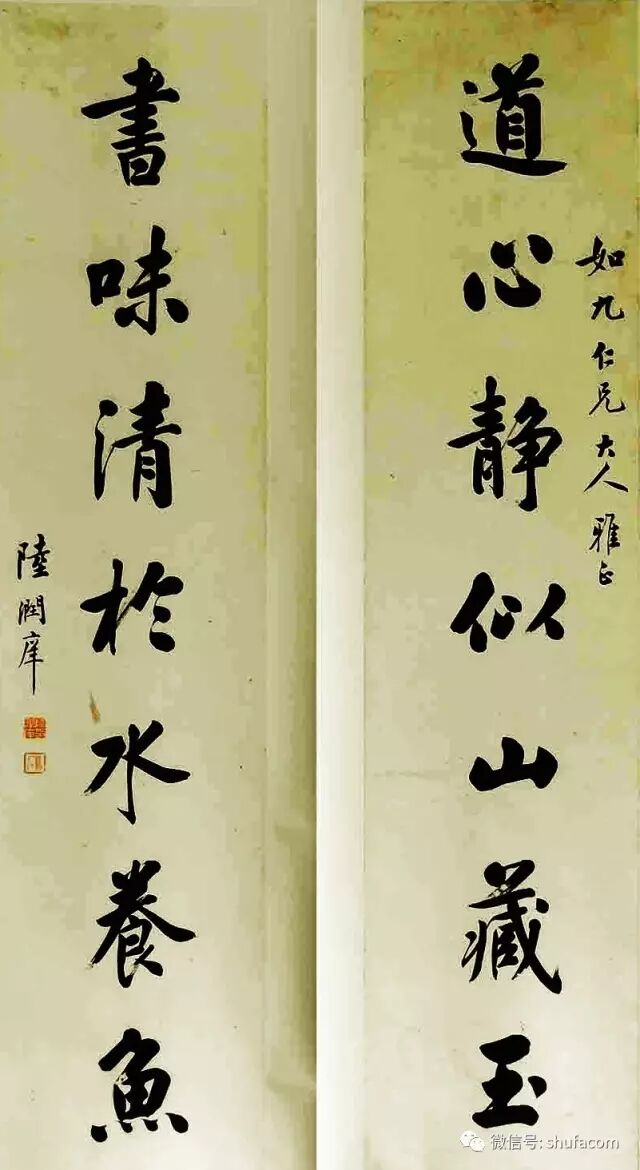 如九仁兄大人雅正
道心静似山藏玉
書味清於水養魚
陸潤庠
微信号: shufacom